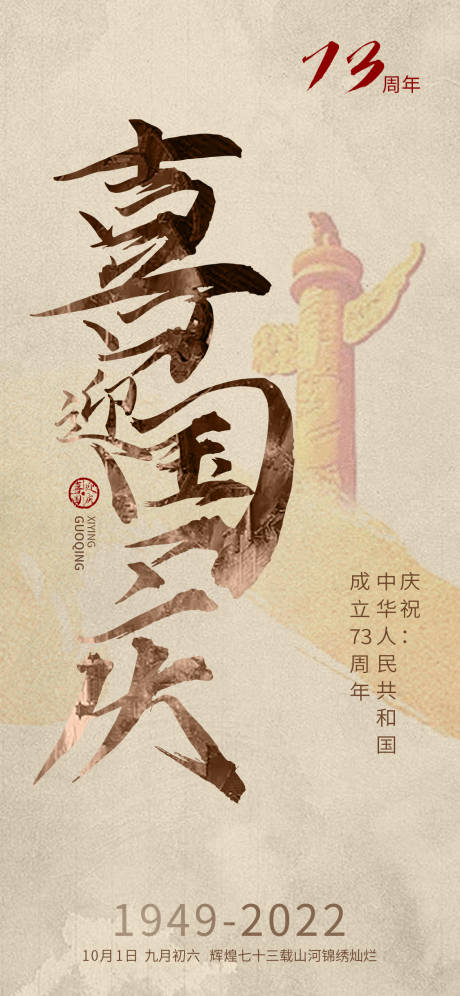 73周年
喜迎国庆
喜迎国庆
XIYING
GUOQING
庆祝：
中华人民共和国
成立73周年
1949-2022
10月1日 九月初六 辉煌七十三载山河锦绣灿烂